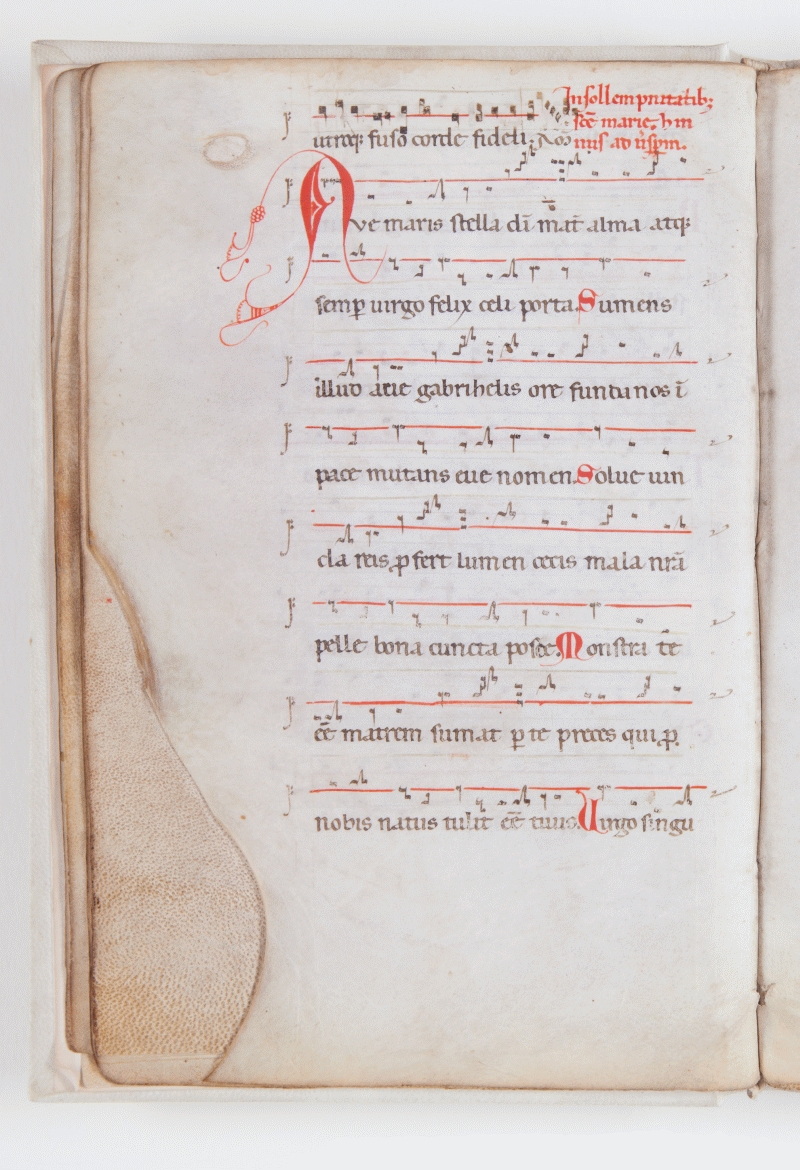 utroq; fuso corde fideli.
In sollempnitatib;
sc̄e marie. hm
nus ad ū̄sp̄m.
Ave maris stella dī mat̄ alma atq;
semp̄ uirgo felix celi porta. Sumens
illud aue gabrihelis ore funda nos ī
pace mutans eue nomen. Solue uin
cla reis p̄fert lumen cecis mala nr̄a
pelle bona cuncta posce. Monstra te
eē matrem sumat p̄ te preces qui p̄
nobis natus tulit eē tuus. Uirgo singu